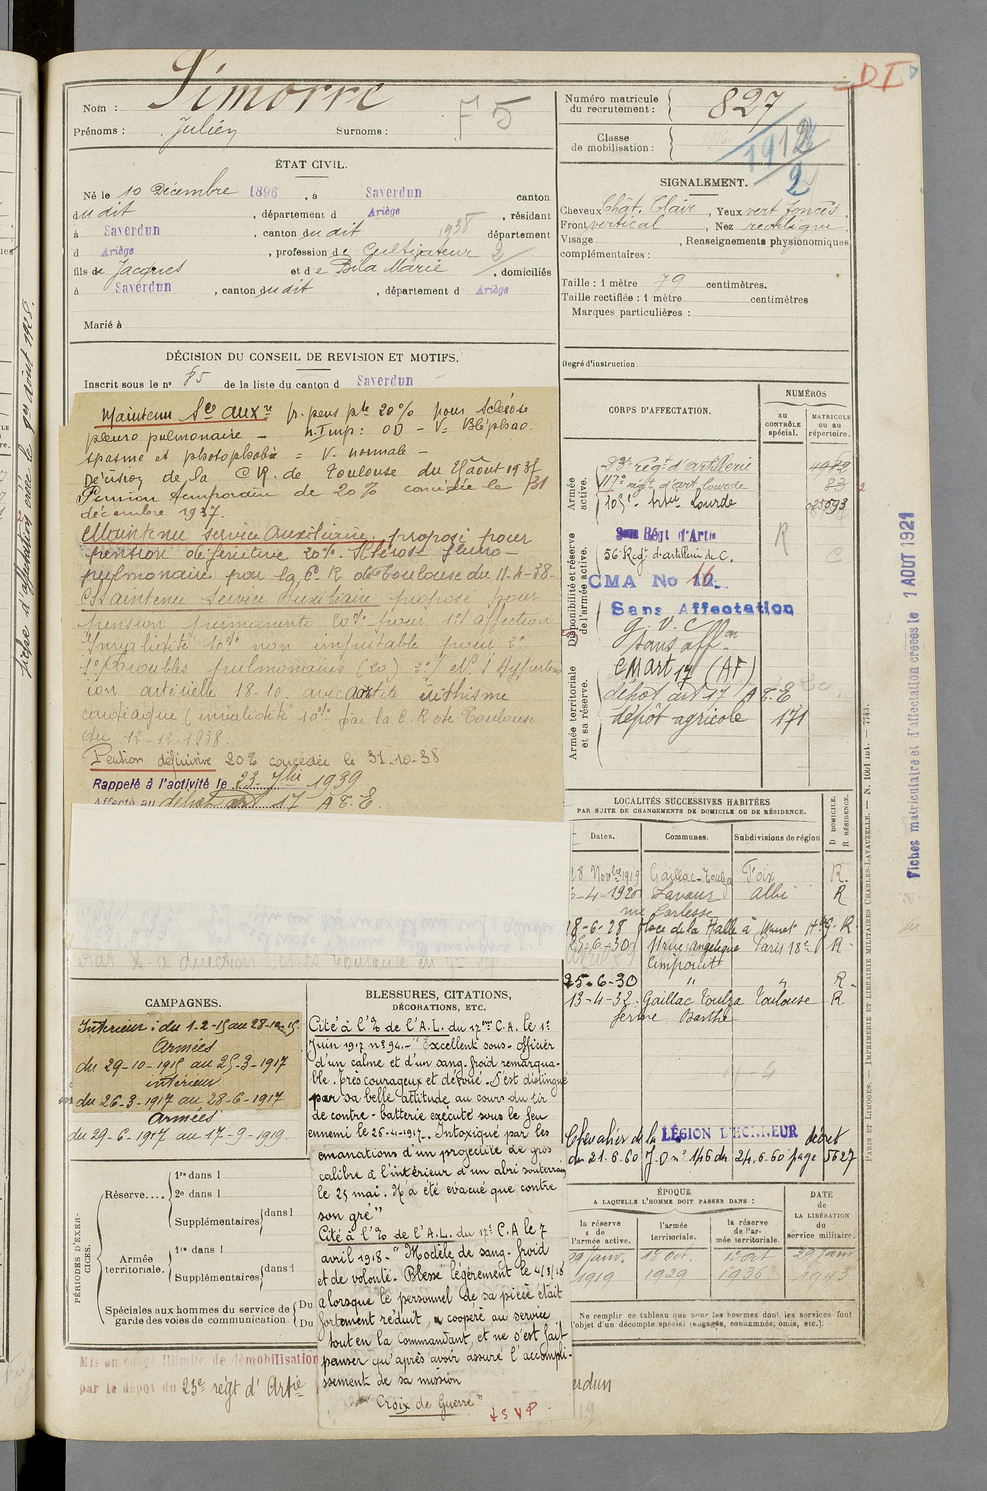 Nom : Simorre
Prénoms : Julien Surnoms :
F 5
ÉTAT CIVIL.
Né le 10 Décembre 1896, à Saverdun canton
dudit, département d Ariège, résidant
à Saverdun, canton dudit 1938 département
d Ariège, profession de Cultivateur 2
fils de Jacques et de Bila Marie, domiciliés
à Saverdun, canton dudit, département d Ariège
Marié à
DÉCISION DU CONSEIL DE REVISION ET MOTIFS.
Inscrit sous le n° 85 de la liste du canton d Saverdun
Maintenu Sce auxre pr. pens pte 20% pour Sclérose
pleuro pulmonaire - n. Imp : OD - V = Blépharo
spasme et photophobie = V. normale -
Décision de la C.R. de Toulouse du août 193
Pension temporaire de 20% concédée le 31
décembre 1937.
Maintenu service Auxiliaire, proposé pour
pension définitive 20%. Sclérose pleuro-
pulmonaire par la C. R de Toulouse du 11-4-38-
Maintenu service Auxiliaire proposé pour
pension permanente 20% pour 1re affection
Invalidité 10% non imputable pour 2°
1° Troubles pulmonaires (20) 2°/ N.I Hyperten
ion artérielle 18-10. avec
cardiaque (invalidité 10% par la C.R de Toulouse
du 12-12-1938.
Pention définitive 20% concedée le 31-10-38
Rappelé à l'activité le 23-7bre 1939
Affecté au dépôt art 17 A.T.E.
CAMPAGNES.
Intérieur : du 1-2-15 au 28-10-15.
Armées
du 29-10-1915 au 25-3-1917
intérieur
du 26-3-1917 au 28-6-1917
Armées
du 29-6-1917 au 17-9-1919.
PÉRIODES D'EXERCICES.
Réserve....
1re dans l
2e dans l
Supplémentaires dans l
Armée territoriale.
1re dans l
Supplémentaires dans l
Spéciales aux hommes du service de garde des voies de communication
Du
Du
Mis en congé illimité de démobilisation
par le dépôt du 23e régt d'Artie
BLESSURES, CITATIONS,
DÉCORATIONS, ETC.
Cité à l'O de l'A.L. du 17me C.A. le 1er
Juin 1917 n° 94.- "Excellent sous-officier
d'un calme et d'un sang-froid remarqua-
ble. très courageux et dévoué. S'est distingué
par sa belle attitude au cours du tir
de contre-batterie exécuté sous le feu
ennemi le 26-4-1917. Intoxiqué par les
émanations d'un projectile de gros
calibre à l'intérieur d'un abri souterrain
le 25 mai. N'a été évacué que contre
son gré"
Cité à l'O de l'A.L. du 17e C.A le 7
avril 1918.- "Modèle de sang-froid
et de volonté. Blessé légèrement le 4/3/18
alorsque le personnel de sa pièce était
fortement réduit, a coopéré au service
tout en la commandant, et ne s'est fait
panser qu'après avoir assuré l'accompli-
ssement de sa mission
"Croix de Guerre"
TSVP.
D I
Numéro matricule
du recrutement : 827
Classe
de mobilisation : 1912
2
SIGNALEMENT.
Cheveux Chât. Clair, Yeux vert foncés,
Front vertical, Nez rectiligne
Visage, Renseignements physionomiques
complémentaires :
Taille : 1 mètre 79 centimètres.
Taille rectifiée : 1 mètre centimètres
Marques particulières :
Degré d'instruction
CORPS D'AFFECTATION.
NUMÉROS
au CONTRÔLE spécial.
MATRICULE ou au répertoire.
Armée active.
23e régt d'artillerie
117e régt d'art. lourde
105e Artie Lourde 025593
Disponibilité et réserve de l'armée active.
Régt d'Artie R
56e Régt d'artillerie de C. C
CMA No 16.
Sans Affectation
G. V. C
Sans affon
Armée territoriale et sa réserve.
CM art 17 (AF)
dépôt art 17 A.T.E
dépôt agricole 171
LOCALITÉS SUCCESSIVES HABITÉES
PAR SUITE DE CHANGEMENTS DE DOMICILE OU DE RÉSIDENCE.
Dates. Communes. Subdivisions de région D DOMICILE. R RÉSIDENCE.
28 Novbre 1919 Gaillac-Toulza Foix R.
-4-1920 Lavaur Albi R
18-6-28 Place de la Halle à Muret R.
25-6-30 Paris 18e R.
25-6-30 " " R.
13-4-32 Gaillac Toulza Toulouse R
ferme Barthe
Chevalier de la LÉGION D'HONNEUR décret
du 21.6.60 J.O n° 146 du 24.6.60 page 5627
ÉPOQUE
A LAQUELLE L'HOMME DOIT PASSER DANS :
la réserve de l'armée active.
l'armée territoriale.
la réserve de l'armée territoriale.
DATE de LA LIBÉRATION du service militaire.
29 Janv. 1er Oct. 1er Oct 29 Janv
1919 1929 1936 1943
Ne remplir ce tableau que pour les hommes dont les services font
l'objet d'un décompte spécial (engagés, condamnés, omis, etc.).
PARIS ET LIMOGES. — IMPRIMERIE ET LIBRAIRIE MILITAIRES CHARLES-LAVAUZELLE. — N. 1001 — 7743.
Fiches matriculaire et d'affectation créées le 1 AOUT 1921